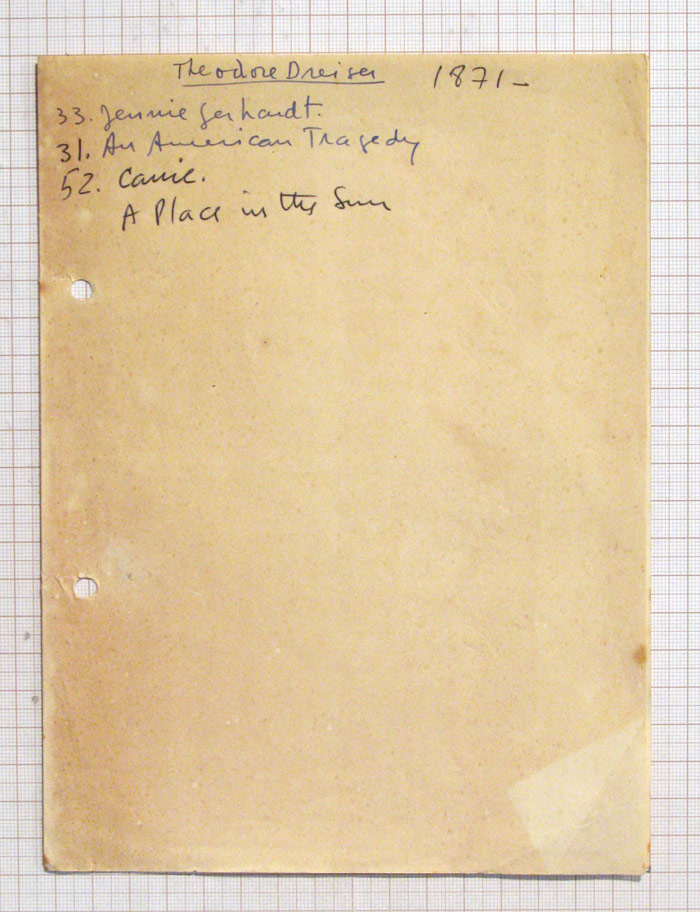 Theodore Dreiser 1871-
33. Jennie Gerhardt.
31. An American Tragedy
52. Carrie.
A Place in the Sun